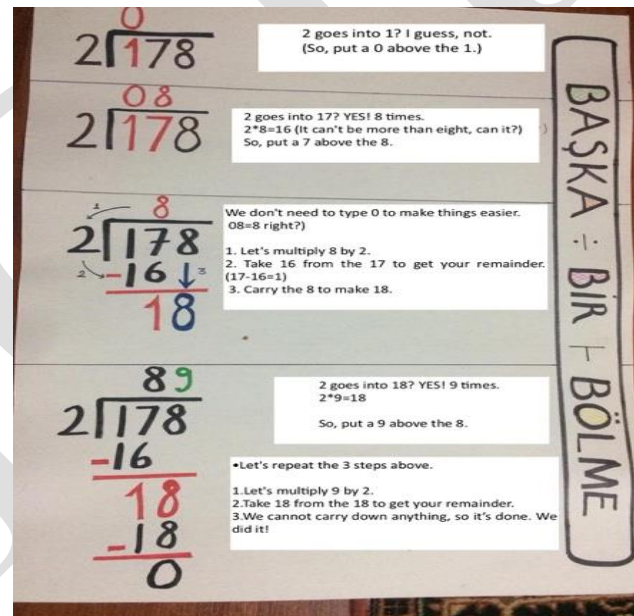 0
2 178
2 goes into 1? I guess, not.
(So, put a 0 above the 1.)
08
2 178
2 goes into 17? YES! 8 times.
2*8=16 (It can't be more than eight, can it?)
So, put a 7 above the 8.
8
1
2 178
2 -16 3
18
We don't need to type 0 to make things easier.
08=8 right?)
1. Let's multiply 8 by 2.
2. Take 16 from the 17 to get your remainder.
(17-16=1)
3. Carry the 8 to make 18.
89
2 178
-16
18
-18
0
2 goes into 18? YES! 9 times.
2*9=18
So, put a 9 above the 8.
•Let's repeat the 3 steps above.
1.Let's multiply 9 by 2.
2.Take 18 from the 18 to get your remainder.
3.We cannot carry down anything, so it's done. We
did it!
BAŞKA ÷ BİR ⊢ BÖLME